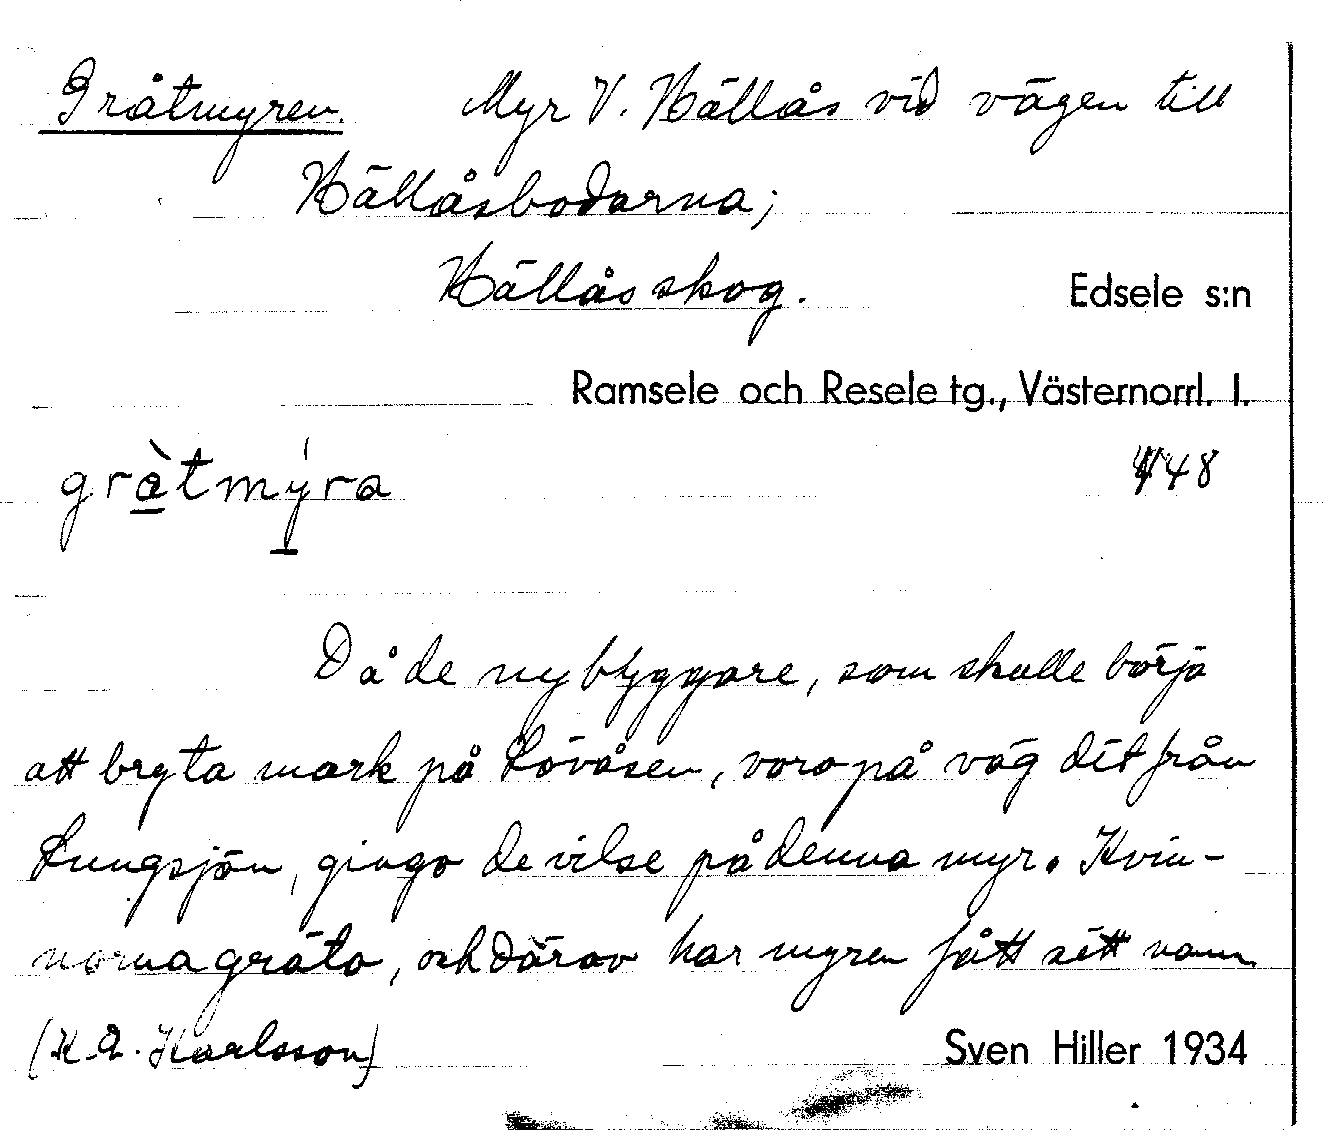 Gråtmyren. Myr V. Hällås vid vägen till
Hällåsbodarna;
Hällås skog.
Edsele s:n
Ramsele och Resele tg., Västernorrl. l.
gràtmýra
48
Då de nybyggare, som skulle börja
att bryta mark på Lövåsen, voro på väg dit från
Lungsjön, gingo de vilse på denna myr. Kvin-
norna gräto, och därav har myren fått sitt namn
(K. A. Karlsson)
Sven Hiller 1934